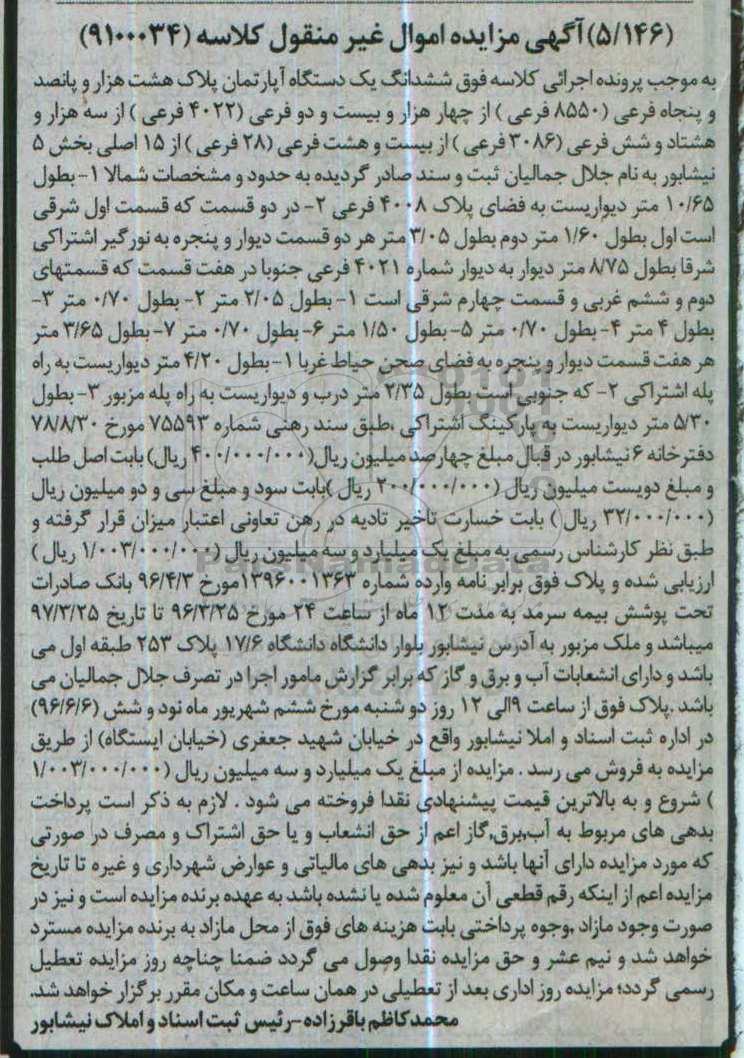 (۵/۱۴۶) آگهی مزایده اموال غیر منقول کلاسه (۹۱۰۰۰۳۴)
به موجب پرونده اجرائی کلاسه فوق ششدانگ یک دستگاه آپارتمان پلاک هشت هزار و پانصد
و پنجاه فرعی (۸۵۵۰ فرعی ) از چهار هزار و بیست و دو فرعی (۴۰۲۲ فرعی ) از سه هزار و
هشتاد و شش فرعی (۳۰۸۶ فرعی ) از بیست و هشت فرعی (۲۸ فرعی ) از ۱۵ اصلی بخش ۵
نیشابور به نام جلال جمالیان ثبت و سند صادر گردیده به حدود و مشخصات شمالا ۱- بطول
۱۰/۶۵ متر دیواریست به فضای پلاک ۴۰۰۸ فرعی ۲- در دو قسمت که قسمت اول شرقی
است اول بطول ۱/۶۰ متر دوم بطول ۳/۰۵ متر هر دو قسمت دیوار و پنجره به نورگیر اشتراکی
شرقا بطول ۸/۷۵ متر دیوار به دیوار شماره ۴۰۲۱ فرعی جنوبا در هفت قسمت که قسمتهای
دوم و ششم غربی و قسمت چهارم شرقی است ۱- بطول ۲/۰۵ متر ۲- بطول ۰/۷۰ متر ۳-
بطول ۴ متر ۴- بطول ۰/۷۰ متر ۵- بطول ۱/۵۰ متر ۶- بطول ۰/۷۰ متر ۷- بطول ۳/۶۵ متر
هر هفت قسمت دیوار و پنجره به فضای صحن حیاط غربا ۱- بطول ۴/۲۰ متر دیواریست به راه
پله اشتراکی ۲- که جنوبی است بطول ۲/۳۵ متر درب و دیواریست به راه پله مزبور ۳- بطول
۵/۳۰ متر دیواریست به پارکینگ اشتراکی ،طبق سند رهنی شماره ۷۵۵۹۳ مورخ ۷۸/۸/۳۰
دفترخانه ۶ نیشابور در قبال مبلغ چهارصد میلیون ریال(۴۰۰/۰۰۰/۰۰۰ ریال) بابت اصل طلب
و مبلغ دویست میلیون ریال (۲۰۰/۰۰۰/۰۰۰ ریال )بابت سود و مبلغ سی و دو میلیون ریال
(۳۲/۰۰۰/۰۰۰ ریال ) بابت خسارت تاخیر تادیه در رهن تعاونی اعتبار میزان قرار گرفته و
طبق نظر کارشناس رسمی به مبلغ یک میلیارد و سه میلیون ریال (۱/۰۰۳/۰۰۰/۰۰۰ ریال )
ارزیابی شده و پلاک فوق برابر نامه وارده شماره ۱۳۹۶۰۰۱۳۶۳مورخ ۹۶/۴/۳ بانک صادرات
تحت پوشش بیمه سرمد به مدت ۱۲ ماه از ساعت ۲۴ مورخ ۹۶/۳/۲۵ تا تاریخ ۹۷/۳/۲۵
میباشد و ملک مزبور به آدرس نیشابور بلوار دانشگاه دانشگاه ۱۷/۶ پلاک ۲۵۳ طبقه اول می
باشد و دارای انشعابات آب و برق و گاز که برابر گزارش مامور اجرا در تصرف جلال جمالیان می
باشد .پلاک فوق از ساعت ۹الی ۱۲ روز دو شنبه مورخ ششم شهریور ماه نود و شش (۹۶/۶/۶)
در اداره ثبت اسناد و املا نیشابور واقع در خیابان شهید جعفری (خیابان ایستگاه) از طریق
مزایده به فروش می رسد . مزایده از مبلغ یک میلیارد و سه میلیون ریال (۱/۰۰۳/۰۰۰/۰۰۰
) شروع و به بالاترین قیمت پیشنهادی نقدا فروخته می شود . لازم به ذکر است پرداخت
بدهی های مربوط به آب،برق،گاز اعم از حق انشعاب و یا حق اشتراک و مصرف در صورتی
که مورد مزایده دارای آنها باشد و نیز بدهی های مالیاتی و عوارض شهرداری و غیره تا تاریخ
مزایده اعم از اینکه رقم قطعی آن معلوم شده یا نشده باشد به عهده برنده مزایده است و نیز در
صورت وجود مازاد ،وجوه پرداختی بابت هزینه های فوق از محل مازاد به برنده مزایده مسترد
خواهد شد و نیم عشر و حق مزایده نقدا وصول می گردد ضمنا چناچه روز مزایده تعطیل
رسمی گردد؛ مزایده روز اداری بعد از تعطیلی در همان ساعت و مکان مقرر برگزار خواهد شد.
محمدکاظم باقرزاده -رئیس ثبت اسناد و املاک نیشابور
ParsNamadData